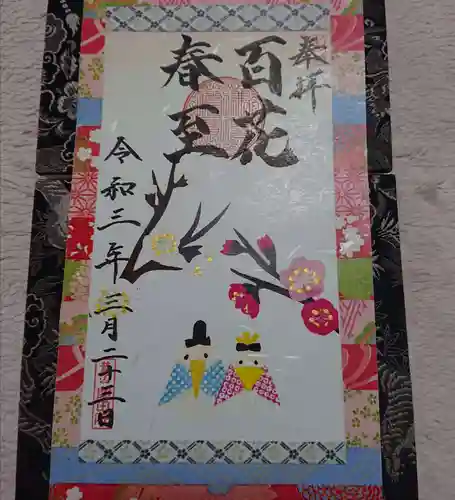 奉拝
百花
春至
令和三年三月二十二日